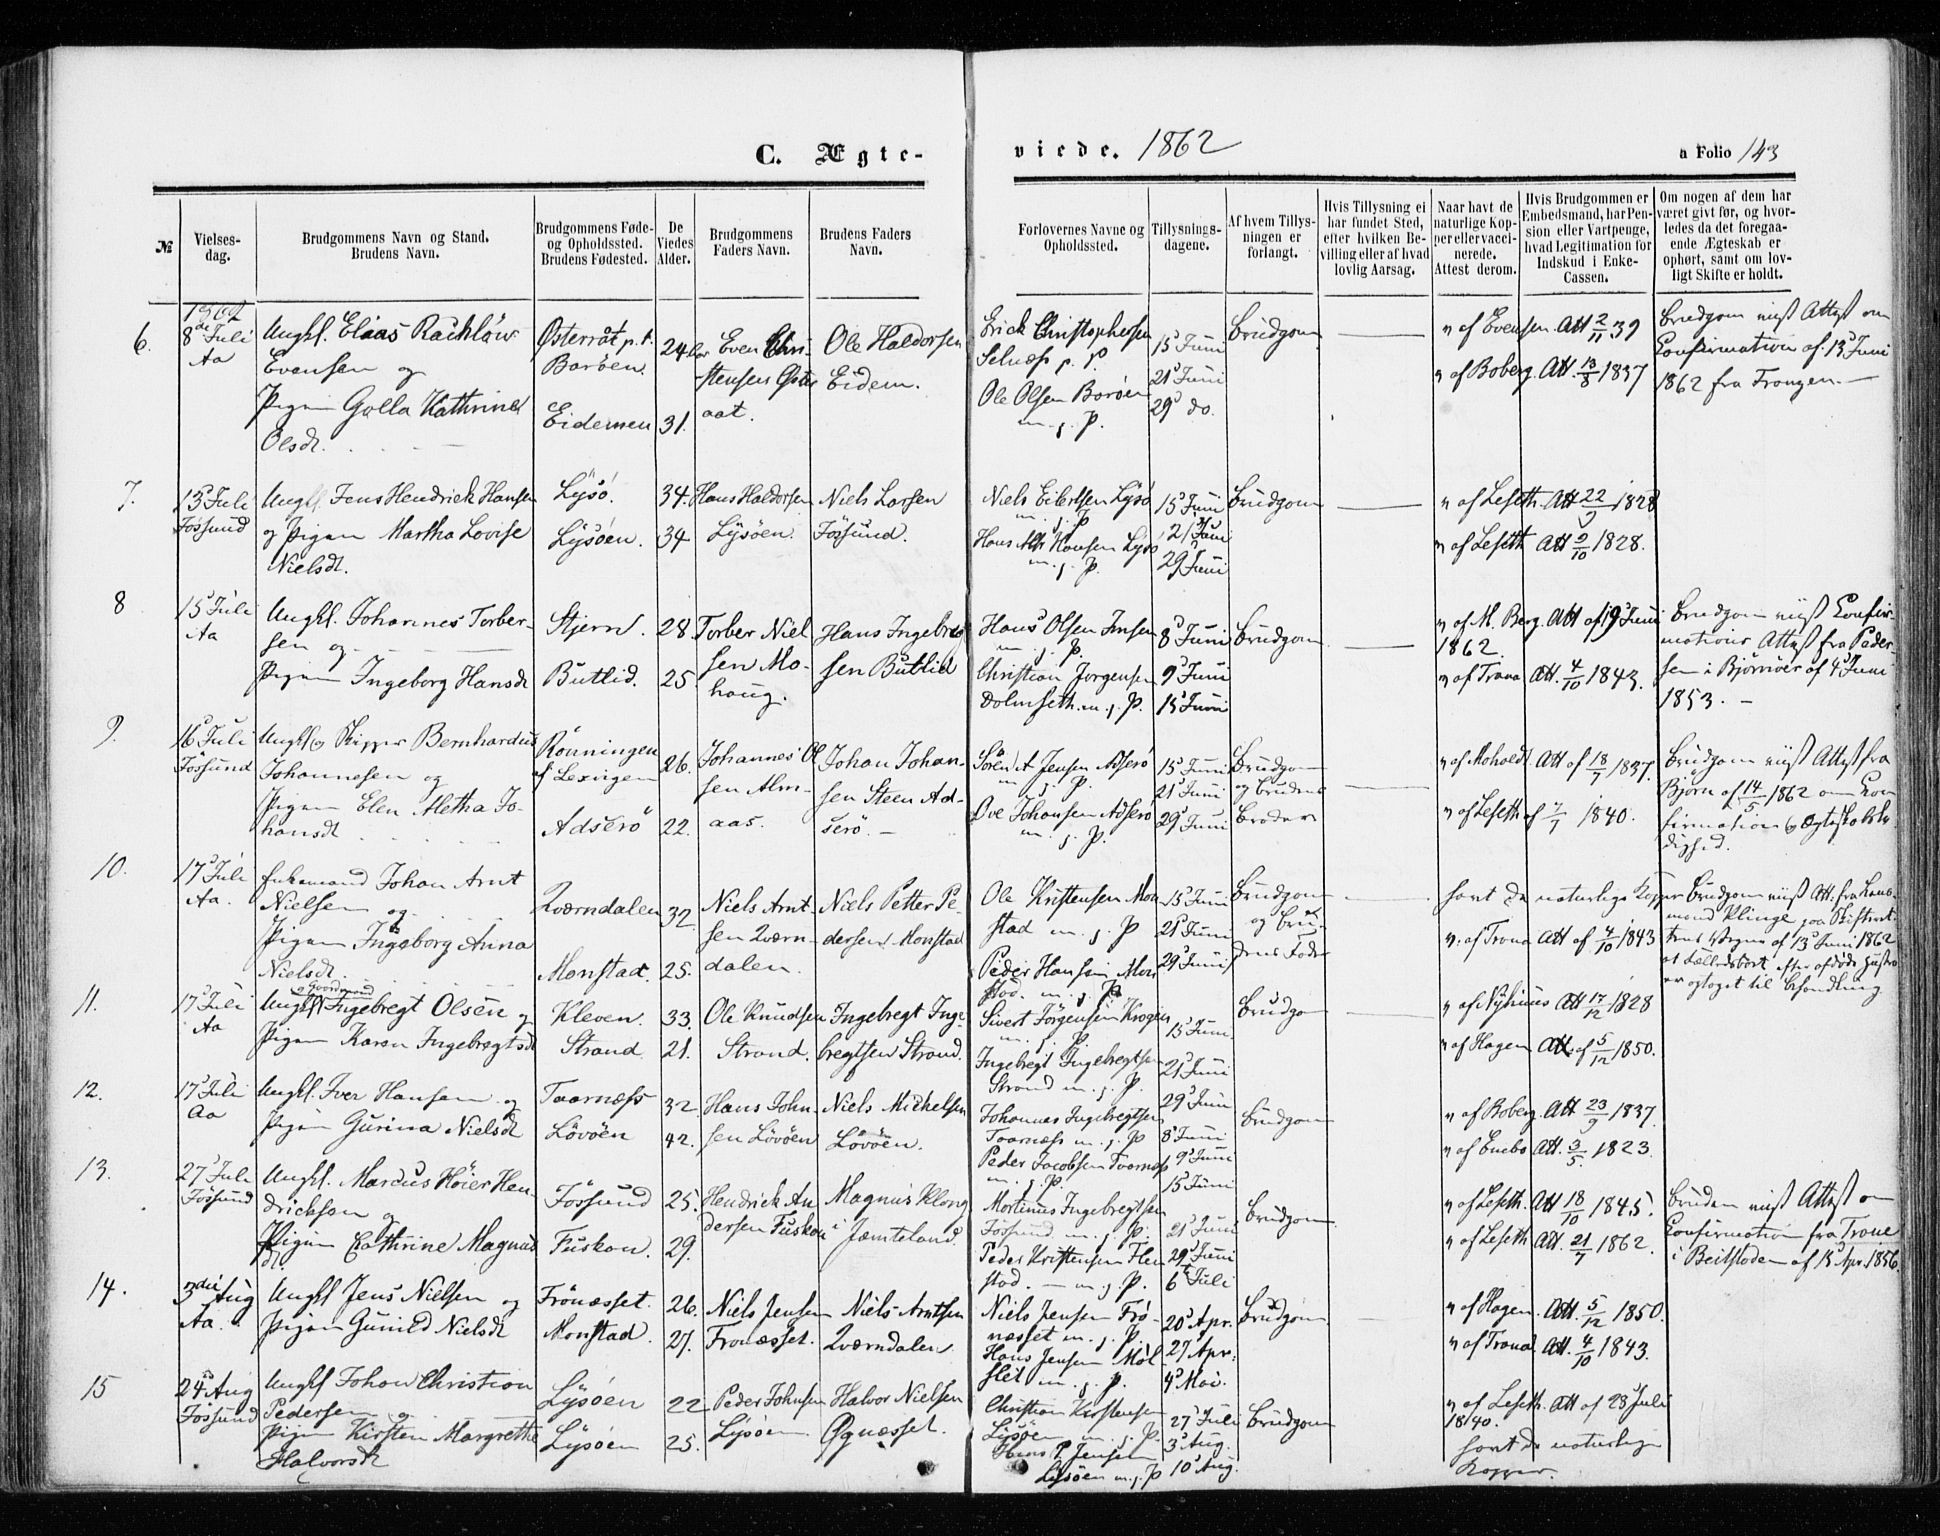 C. Ægte-
viede. 1862
a Folio 143
№
Vielses-
dag.
Brudgommens Navn og Stand.
Brudens Navn.
Brudgommens Føde-
og Opholdssted.
Brudens Fødested.
De
Viedes
Alder.
Brudgommens
Faders Navn.
Brudens Faders
Navn.
Forlovernes Navne og
Opholdssted.
Tillysnings-
dagene.
Af hvem Tillys-
ningen er
forlangt.
Hvis Tillysning ei
har fundet Sted,
efter hvilken Be-
villing eller af hvad
lovlig Aarsag.
Naar havt de
naturlige Kop-
per eller vacci-
nerede.
Attest derom.
Hvis Brudgommen er
Embedsmand, har Pen-
sion eller Vartpenge,
hvad Legitimation for
Indskud i Enke-
Cassen.
Om nogen af dem har
været givt før, og hvor-
ledes da det foregaa-
ende Ægteskab er
ophørt, samt om lov-
ligt Skifte er holdt.
6.
1862
8de Juli
Aa
Ungkl. Elias Rachløw
Evensen og
Pigen Golla Kathrina
Olsdt.
Østerråt p.t.
Borøen.
Eidemen
24
31.
Even Chri-
stensen Øster
aat.
Ole Haldorsen
Eidem.
Erick Christophersen
Selnæss p. P.
Ole Olsen Borøen
m. j. P.
15d Juni
21d Juni
29d do.
Brudgom
v af Evensen Att 2/11 39
v af Boberg. Att. 13/8 1837
Brudgom viist Attest om
Confirmation af 13d Juni
1862 fra Frongen.
7.
13d Juli
Fössund
Ungkl. Jens Hendrick Hansen
og Pigen Martha Lovise
Nielsdt.
Lysö
Lysöen.
34.
34
Hans Haldorsen
Lysöen.
Niels Larsen
Fössund.
Niels Eilertsen Lysö
m. j. P
Hans Hansen Lysö
m. j. P.
15d Juni
21d Juni
29d Juni
Brudgom
v af Leseth. Att 22/9 1828
v af Leseth Att 9/10 1828.
8
15d Juli
Aa
Ungkl. Johannes Torber-
sen og
Pigen Ingeborg Hansdt
Stjern.
Butlid.
28
25.
Torber Niel
sen Mo-
haug.
Hans Ingebrigt
sen Butlid
Hans Olsen Jensen
m. j. P.
Christian Jørgensen
Dolmseth. m. j. P.
8d Juni
9d Juni
15d Juni
Brudgom
v af M. Berg. Att af 19d Juni
1862.
v af Trona Att. 4/10 1843.
Brudgom viist Confir-
mations Attest fra Peder-
sen i Bjørnøer af 4d Juni
1853.
9.
16d Juli
Fössund
Ungkl og Skipper Bernhardus
Johannesen og
Pigen Elen Aletha Jo-
hansdt
Rönningen
af Lexvigen
Adserö
26.
22.
Johannes Ol
sen Alm-
aas.
Johan Johan-
sen Steen Ad-
serö.
Sören A Jensen Adserö
m. j. P.
Ove Johansen Adserö
m. j. P.
15d Juni
21d Juni
29d Juni
Brudgom
og Brudens
Broder
v af Moholdt Att af 18/7 1837.
v af Leseth af 7/7 1840.
Brudgom viist Attest fra
Björn af 14/5 1862 om Con
firmation og Ægteskabsly
dighed.
10.
17d Juli
Aa.
Enkemand Johan Arnt
Nielsen og
Pigen Ingeborg Anna
Nielsdt.
Qværndalen
Monstad.
32
25.
Niels Arnt
sen Qværn-
dalen.
Niels Petter Pe-
dersen Monstad
Ole Kristensen Mon
stad m. j. P
Peder Hansen Mon
stad. m. j. P.
15d Juni
21d Juni
29d Juni
Brudgom
og Bru-
dens Fader
havt de naturlige Kopper
v. af Trona Att af 4/10 1843
Brudgom viist Att. fra Lens-
mand Klinge paa Skifteret
tens Vegne af 13d Juni 1862
at Fællesboet efter afdøde Hustru
er optaget til Behandling
11.
17d Juli
Aa
og Gaardmand
Ungkl Ingebregt Olsen og
Pigen Karen Ingebregtsdt
Kleven.
Strand
33.
21.
Ole Knudsen
Strand.
Ingebregt Inge-
bregtsen Strand.
Sivert Jörgensen Krogen
m. j. P.
Ingebregt Ingebregtsen
Strand m. j. P.
15d Juni
21d Juni
29d Juni
Brudgom
v af Nyhuus Att 17/12 1828
v af Hagen Att. af 5/12 1850.
12.
17d Juli
Aa
Ungkl. Iver Hansen og
Pigen Gurina Nielsdt
Taarnæss
Lövöen
32.
42.
Hans John-
sen Lövöen
Niels Michelsen
Lövöen.
Johannes Ingebregtsen
Taarnæss m. j. P
Peder Jacobsen Taarnæss
m. j. P.
8d Juni
9d Juni
15d Juni
Brudgom
v af Boberg Att 23/9 1837.
v af Enebo Att. 3/5 1823.
13.
27d Juli
Fössund
Ungkl. Marcus Höier Hen-
drickson og
Pigen Cathrine Magnus
dt.
Fössund
Fuskan.
25.
29.
Hendrick An
dersen Fuskan
Magnus Klong
i Jæmteland.
Mortinus Ingebregtsen
Fössund m. j. P.
Peder Kristensen Flen
stad. m. j. P.
21d Juni
29d Juni
6t Juli
Brudgom
v af Leseth. Att 18/10 1845.
v af Leseth Att. 21/7 1862.
Bruden viist Attest om
Confirmation fra Trone
i Beitstaden af 13 Apr. 1856.
14.
3die Aug
Aa.
Ungkl Jens Nielsen og
Pigen Gunild Nielsdt
Frönæsset.
Monstad.
26.
27.
Niels Jensen
Fronæsset.
Niels Arntsen
Qværndalen.
Niels Jensen Frö-
næsset m. j. P.
Hans Jensen Möl-
slet m. j. P.
20d Apr.
27 Apr:
4d Mai.
Brudgom
v af Hagen. Att. 5/12 1850.
v af Trona Att. 4/10 1843.
15
24d Aug
Fössund
Ungkl Johan Christian
Pedersen og
Pigen Kirsten Margrethe
Halvorsdt
Lysöen
Lysöen
22
25.
Peder Johnsen
Lysöen
Halvor Nielsen
Øgnæsset.
Christian Kirstensen
Lysöen m. j. P.
Hans P Jensen
Lysöen m. j. P
27d Juli
3d Aug.
10d Aug.
Brudgom
v af Leseth. Att af 28d Juli
1840.
havt de naturlige
Kopper.